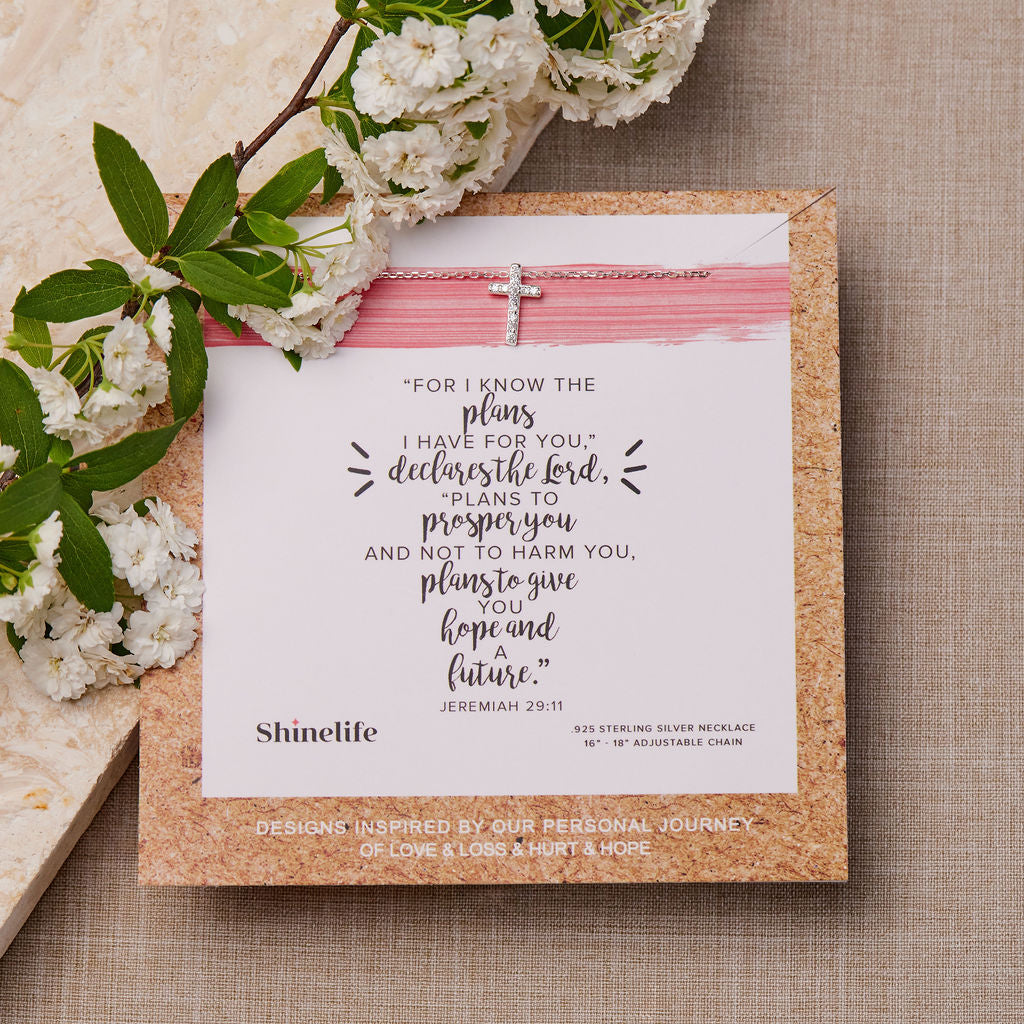 “FOR I KNOW THE
plans
I HAVE FOR YOU,”
declares the Lord,
“PLANS TO
prosper you
AND NOT TO HARM YOU,
plans to give
YOU
hope and
A
future.”
JEREMIAH 29:11
Shinelife
.925 STERLING SILVER NECKLACE
16" - 18" ADJUSTABLE CHAIN
DESIGNS INSPIRED BY OUR PERSONAL JOURNEY
OF LOVE & LOSS & HURT & HOPE